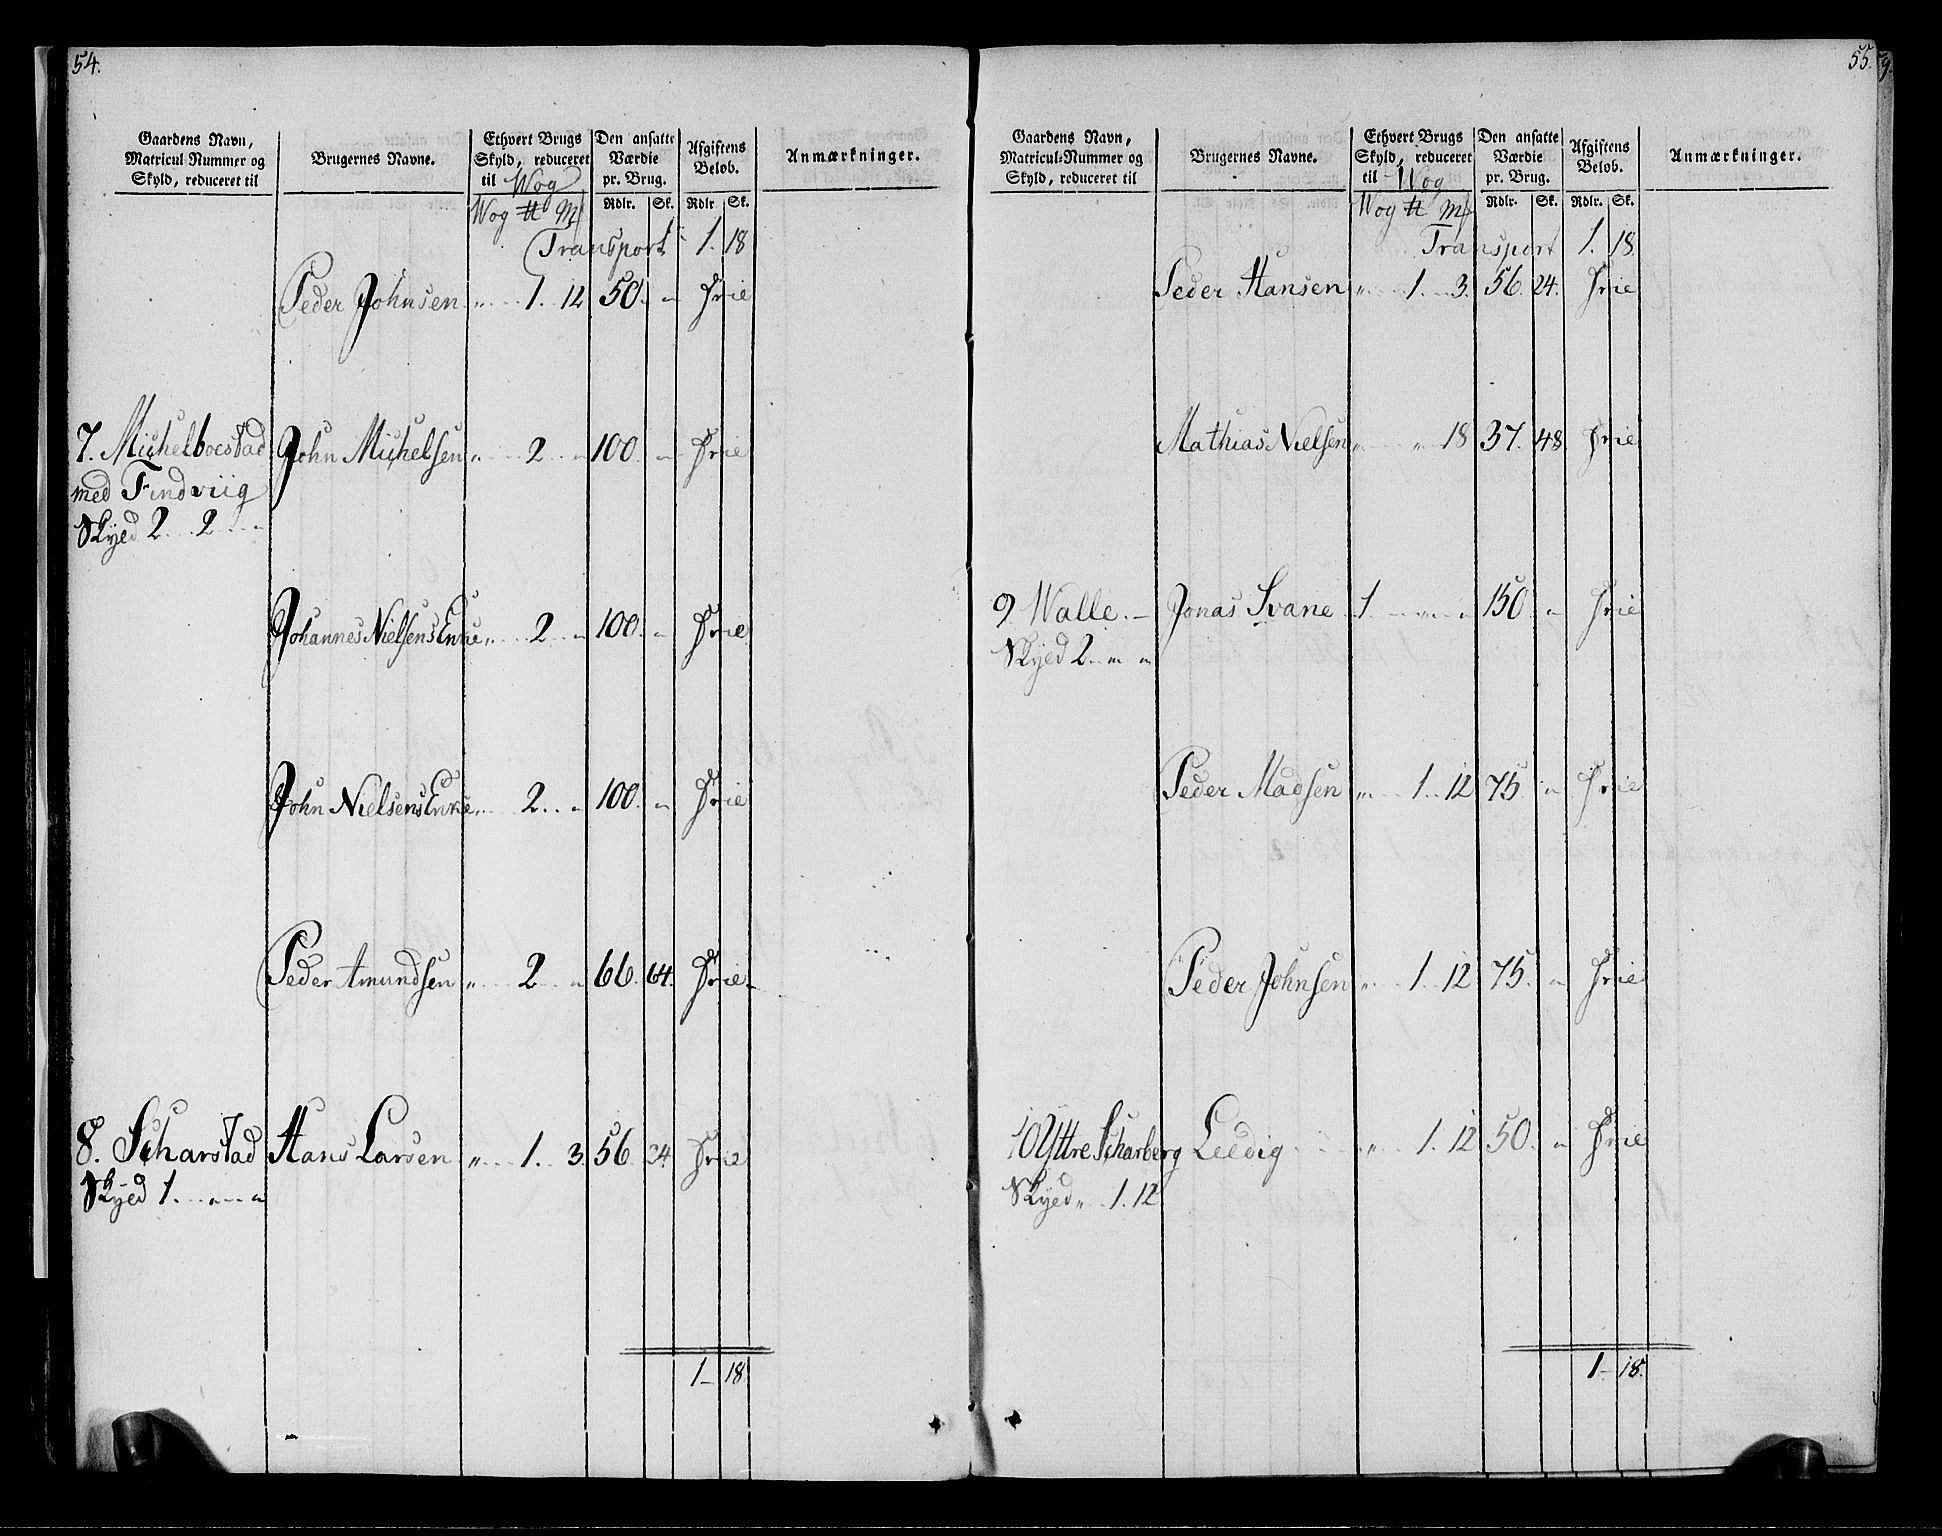 54.
Gaardens Navn, Matricul-Nummer og Skyld, reduceret til | Brugernes Navne. | Ethvert Brugs Skyld, reduceret til Wog | Den ansatte Værdie pr. Brug. | Afgiftens Beløb. | Anmærkninger.
Wog ℔ M | Rdlr. Sk. | Rdlr. Sk.
Transport 1. 18
Peder Johnsen „ 1. 12 50. „ Frie
7. Michelboestad John Michelsen „ 2. „ 100. „ Frie
med Findviig
Skyld 2. 2. „
Johannes Nielsens Enke „ 2. „ 100. „ Frie
John Nielsens Enke „ 2. „ 100. „ Frie
Peder Amundsen „ 2. „ 66. 64. Frie
8. Scharstad Hans Larsen „ 1. 3. 56. 24. Frie
Skyld 1. „ „
1 - 18
55.
Gaardens Navn, Matricul-Nummer og Skyld, reduceret til | Brugernes Navne. | Ethvert Brugs Skyld, reduceret til Wog | Den ansatte Værdie pr. Brug. | Afgiftens Beløb. | Anmærkninger.
Wog ℔ M | Rdlr. Sk. | Rdlr. Sk.
Transport 1. 18
Peder Hansen „ 1. 3. 56. 24. Frie
Mathias Nielsen „ „ 18 37. 48 Frie
9 Walle. Jonas Svane 1. „ „ 150. „ Frie
Skyld 2. „ „
Peder Madsen „ 1. 12 75. „ Frie
Peder Johnsen „ 1. 12 75. „ Frie
10 Yttre Scharberg Leedig „ 1. 12 50. „ Frie
Skyld „ 1. 12
1 - 18.